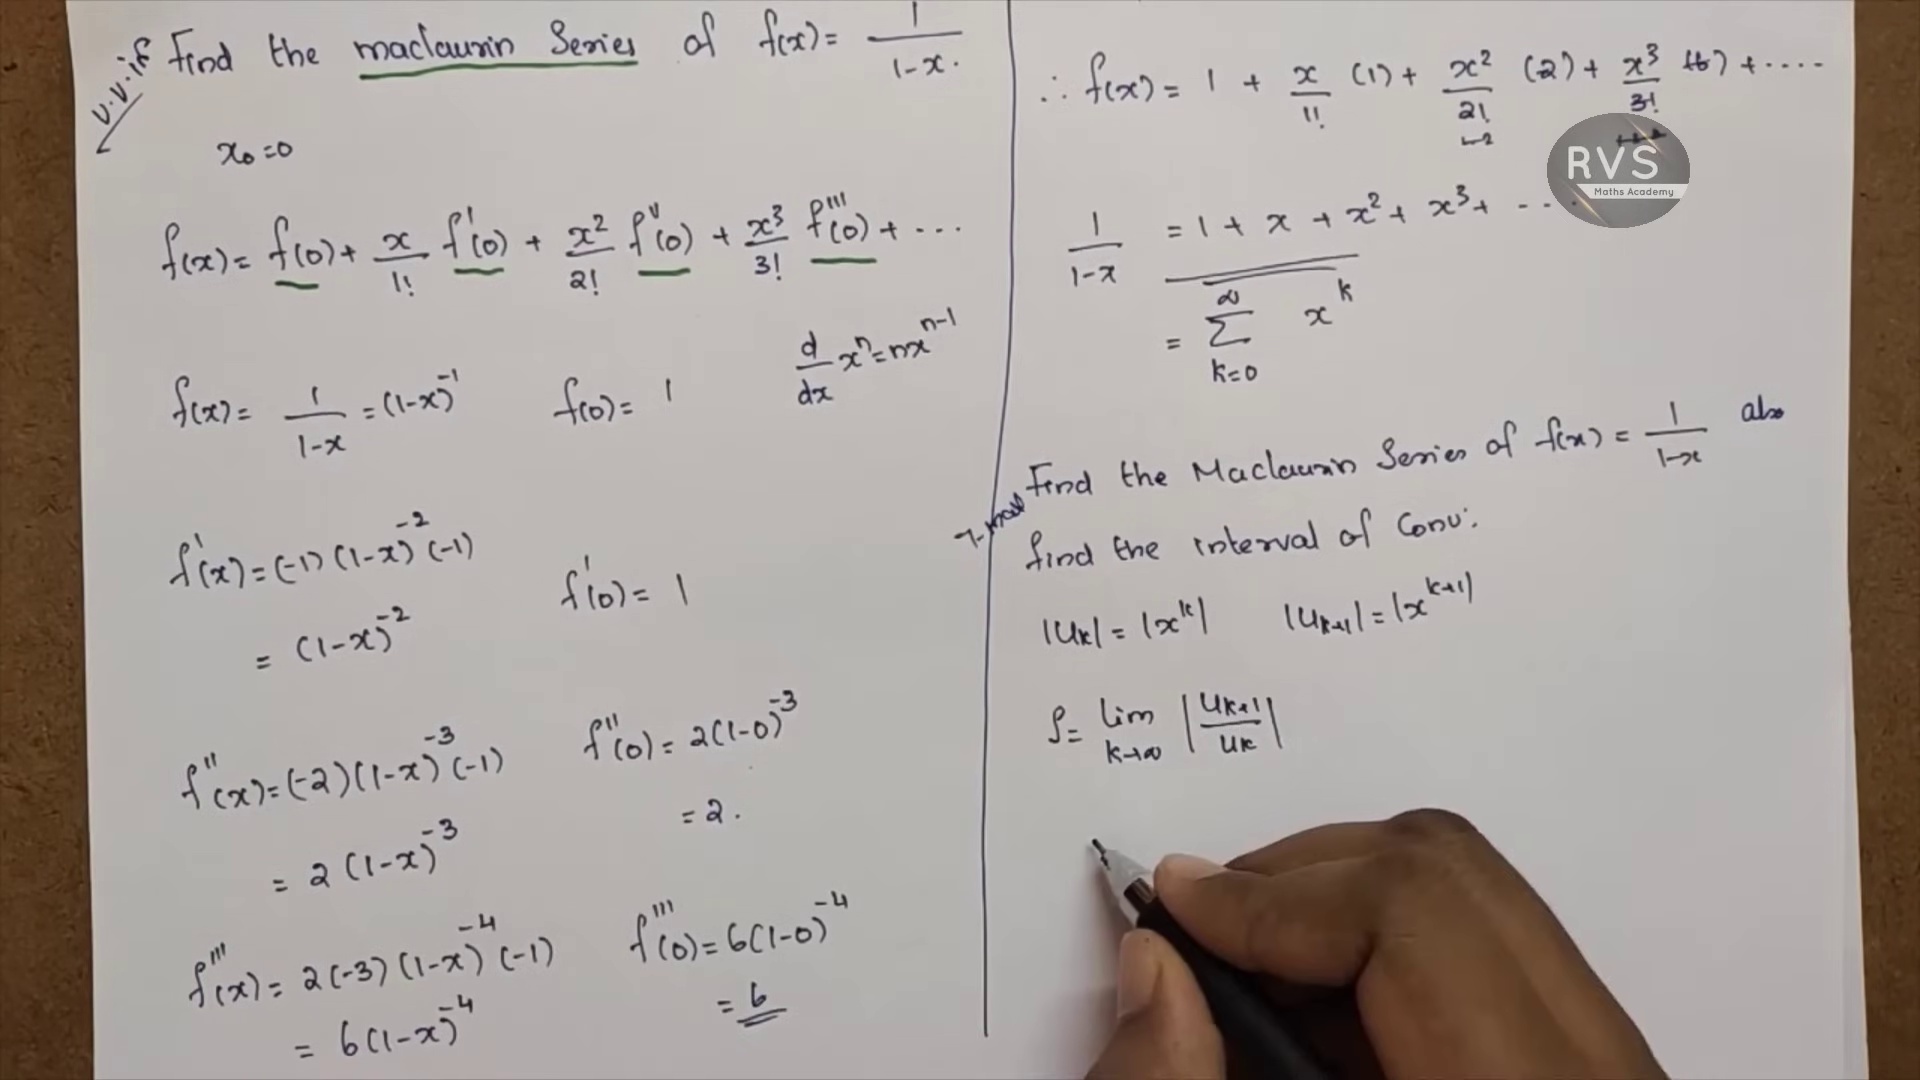 v.v.if Find the maclaurin Series of f(x) = 1/1-x.
x₀ = 0
f(x) = f(0) + x/1! f'(0) + x²/2! f''(0) + x³/3! f'''(0) + ...
f(x) = 1/1-x = (1-x)⁻¹ f(0) = 1 d/dx xⁿ = nxⁿ⁻¹
f'(x) = (-1) (1-x)⁻² (-1) f'(0) = 1
= (1-x)⁻²
f''(x) = (-2) (1-x)⁻³ (-1) f''(0) = 2(1-0)⁻³
= 2.
= 2 (1-x)⁻³
f'''(x) = 2(-3) (1-x)⁻⁴ (-1) f'''(0) = 6(1-0)⁻⁴
= 6
= 6(1-x)⁻⁴
∴ f(x) = 1 + x/1! (1) + x²/2! (2) + x³/3! (6) + ....
RVS
Maths Academy
1/1-x = 1 + x + x² + x³ + ...
= ∞ Σ k=0 xᵏ
Find the Maclaurin Series of f(x) = 1/1-x also
find the interval of Conv:
|Uₖ| = |xᵏ| |Uₖ₊₁| = |xᵏ⁺¹|
ρ = Lim k→∞ |Uₖ₊₁/Uₖ|